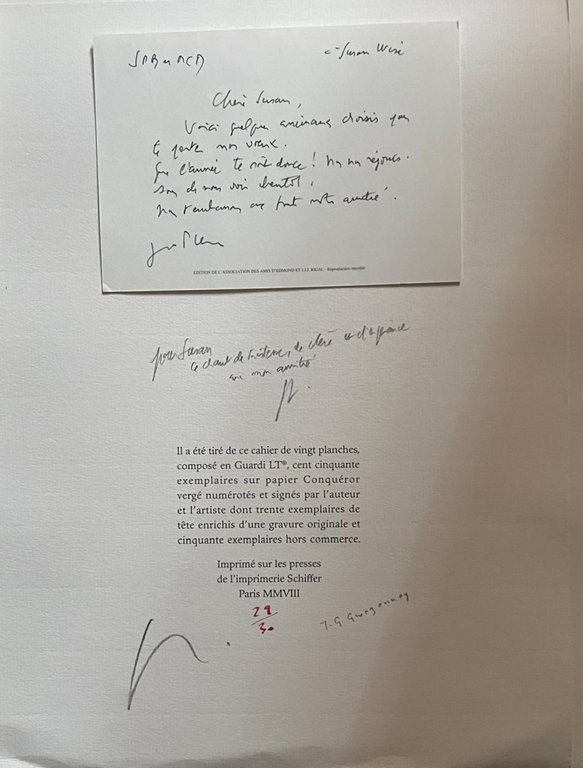 Susan Wise
Chère Susan,
Voici quelques animaux choisis pour
te porter nos vœux.
Que l'année te soit douce !
bientôt,
amitié.
ÉDITION DE L'ASSOCIATION DES AMIS D'EDMOND ET J.J. RIGAL - Reproduction interdite
pour Susan
ce chant de tristesse, de et d'espérance
mon amitié
Il a été tiré de ce cahier de vingt planches,
composé en Guardi LT®, cent cinquante
exemplaires sur papier Conquéror
vergé numérotés et signés par l'auteur
et l'artiste dont trente exemplaires de
tête enrichis d'une gravure originale et
cinquante exemplaires hors commerce.
Imprimé sur les presses
de l'imprimerie Schiffer
Paris MMVIII
29
30
J. G Gwezenneg